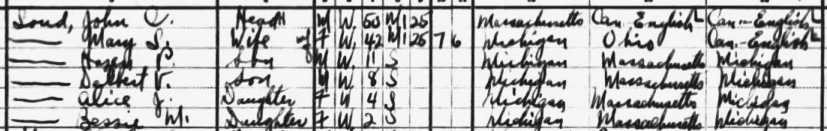 Loud, John C. Head M W 50 M 1 25 Massachusetts Can. English Can-English
—— Mary S. Wife F W 42 M 1 25 7 6 Michigan Ohio Can-English
—— Son M W 11 S Michigan Massachusetts Michigan
—— Delbert V. Son M W 8 S Michigan Massachusetts Michigan
—— Alice J. Daughter F W 4 S Michigan Massachusetts Michigan
—— Bessie M. Daughter F W 2 S Michigan Massachusetts Michigan